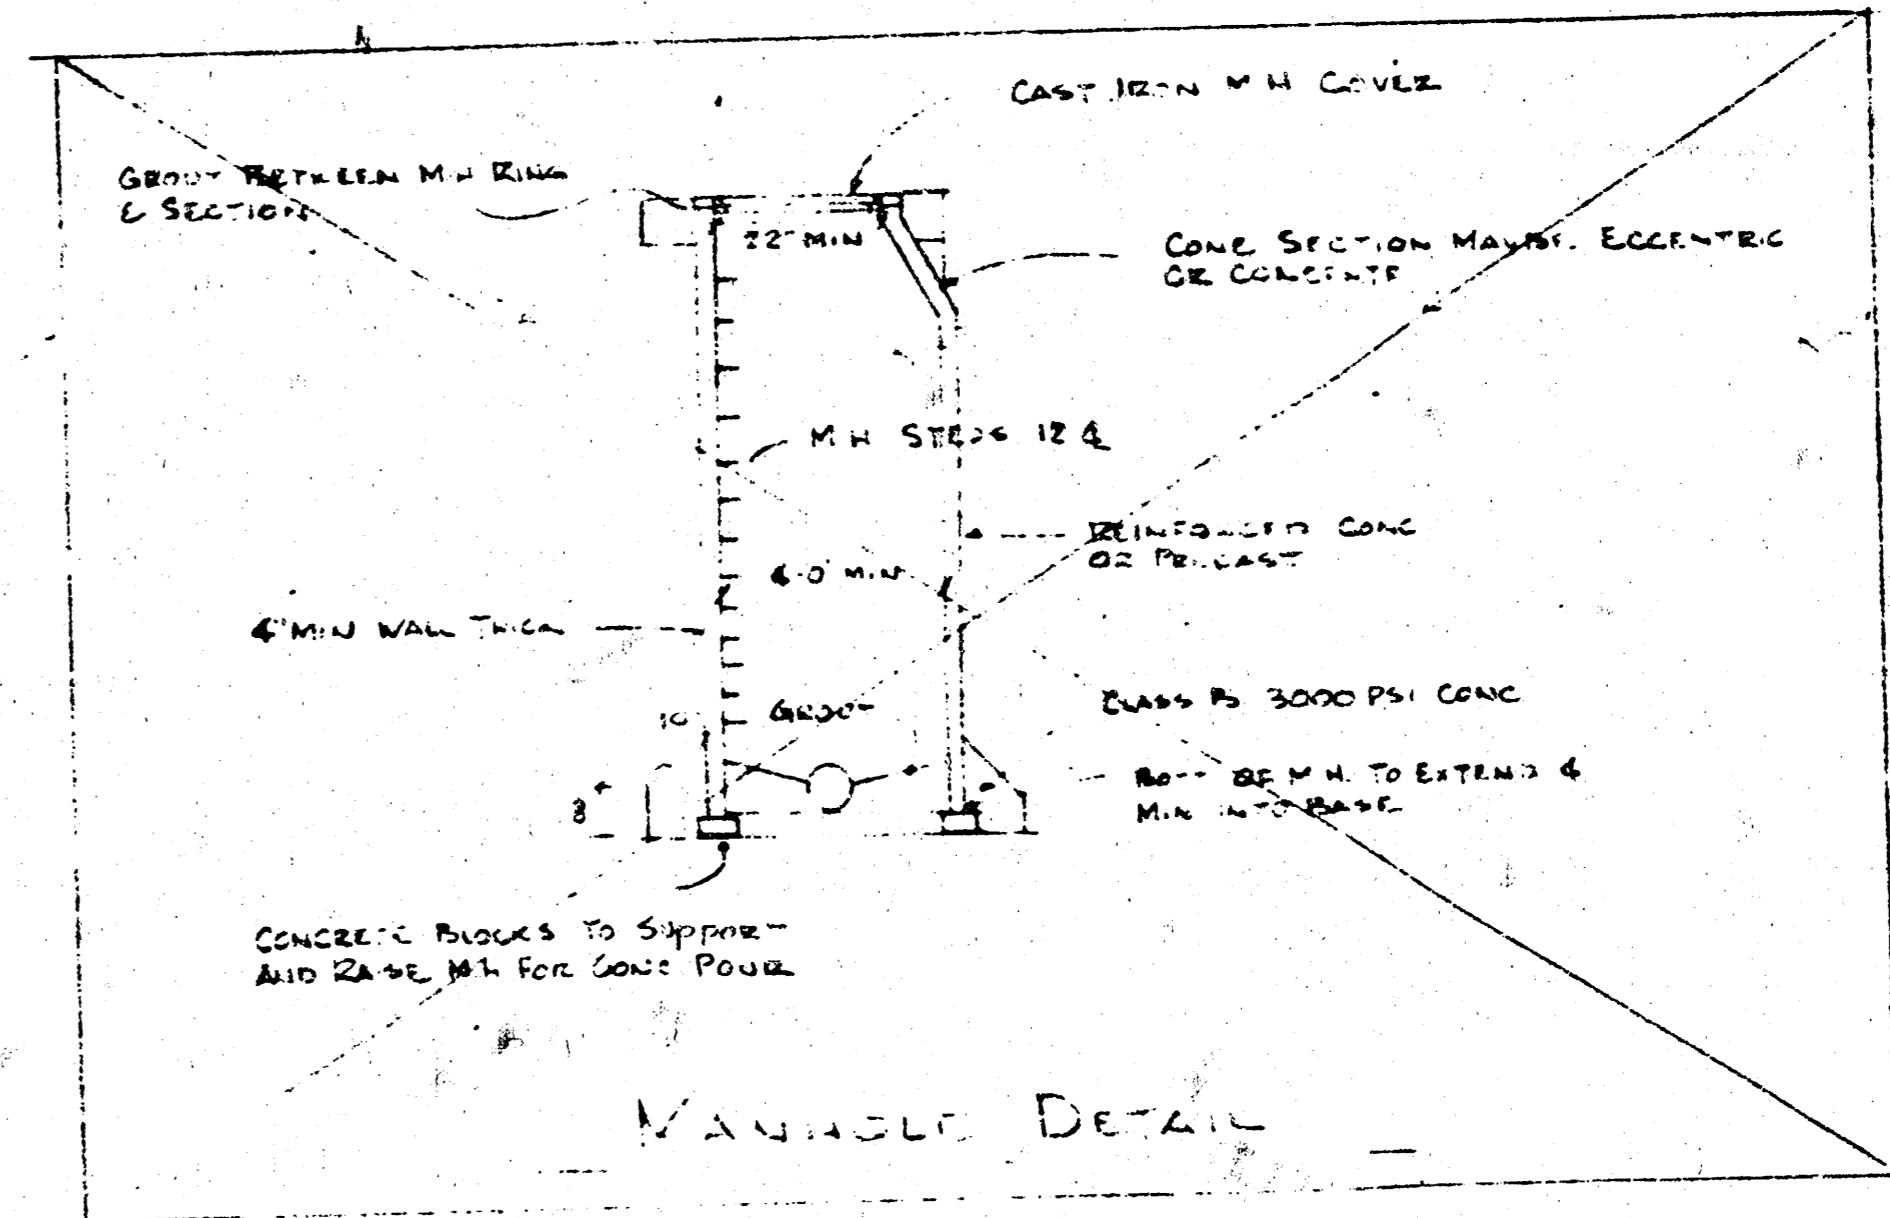 CAST IRON M H COVER
GROUT BETWEEN M H RING
& SECTION
22" MIN
CONE SECTION MAY BE ECCENTRIC
OR CONCENTR
M H STEPS 12 ℄
REINFORCED CONC
OR PRECAST
4'-0" MIN
4" MIN WALL THICK
CLASS B 3000 PSI CONC
10
GROUT
BOTT OF M.H. TO EXTEND 4
MIN INTO BASE
8
CONCRETE BLOCKS TO SUPPORT
AND RAISE MH FOR CONC POUR
MANHOLE DETAIL